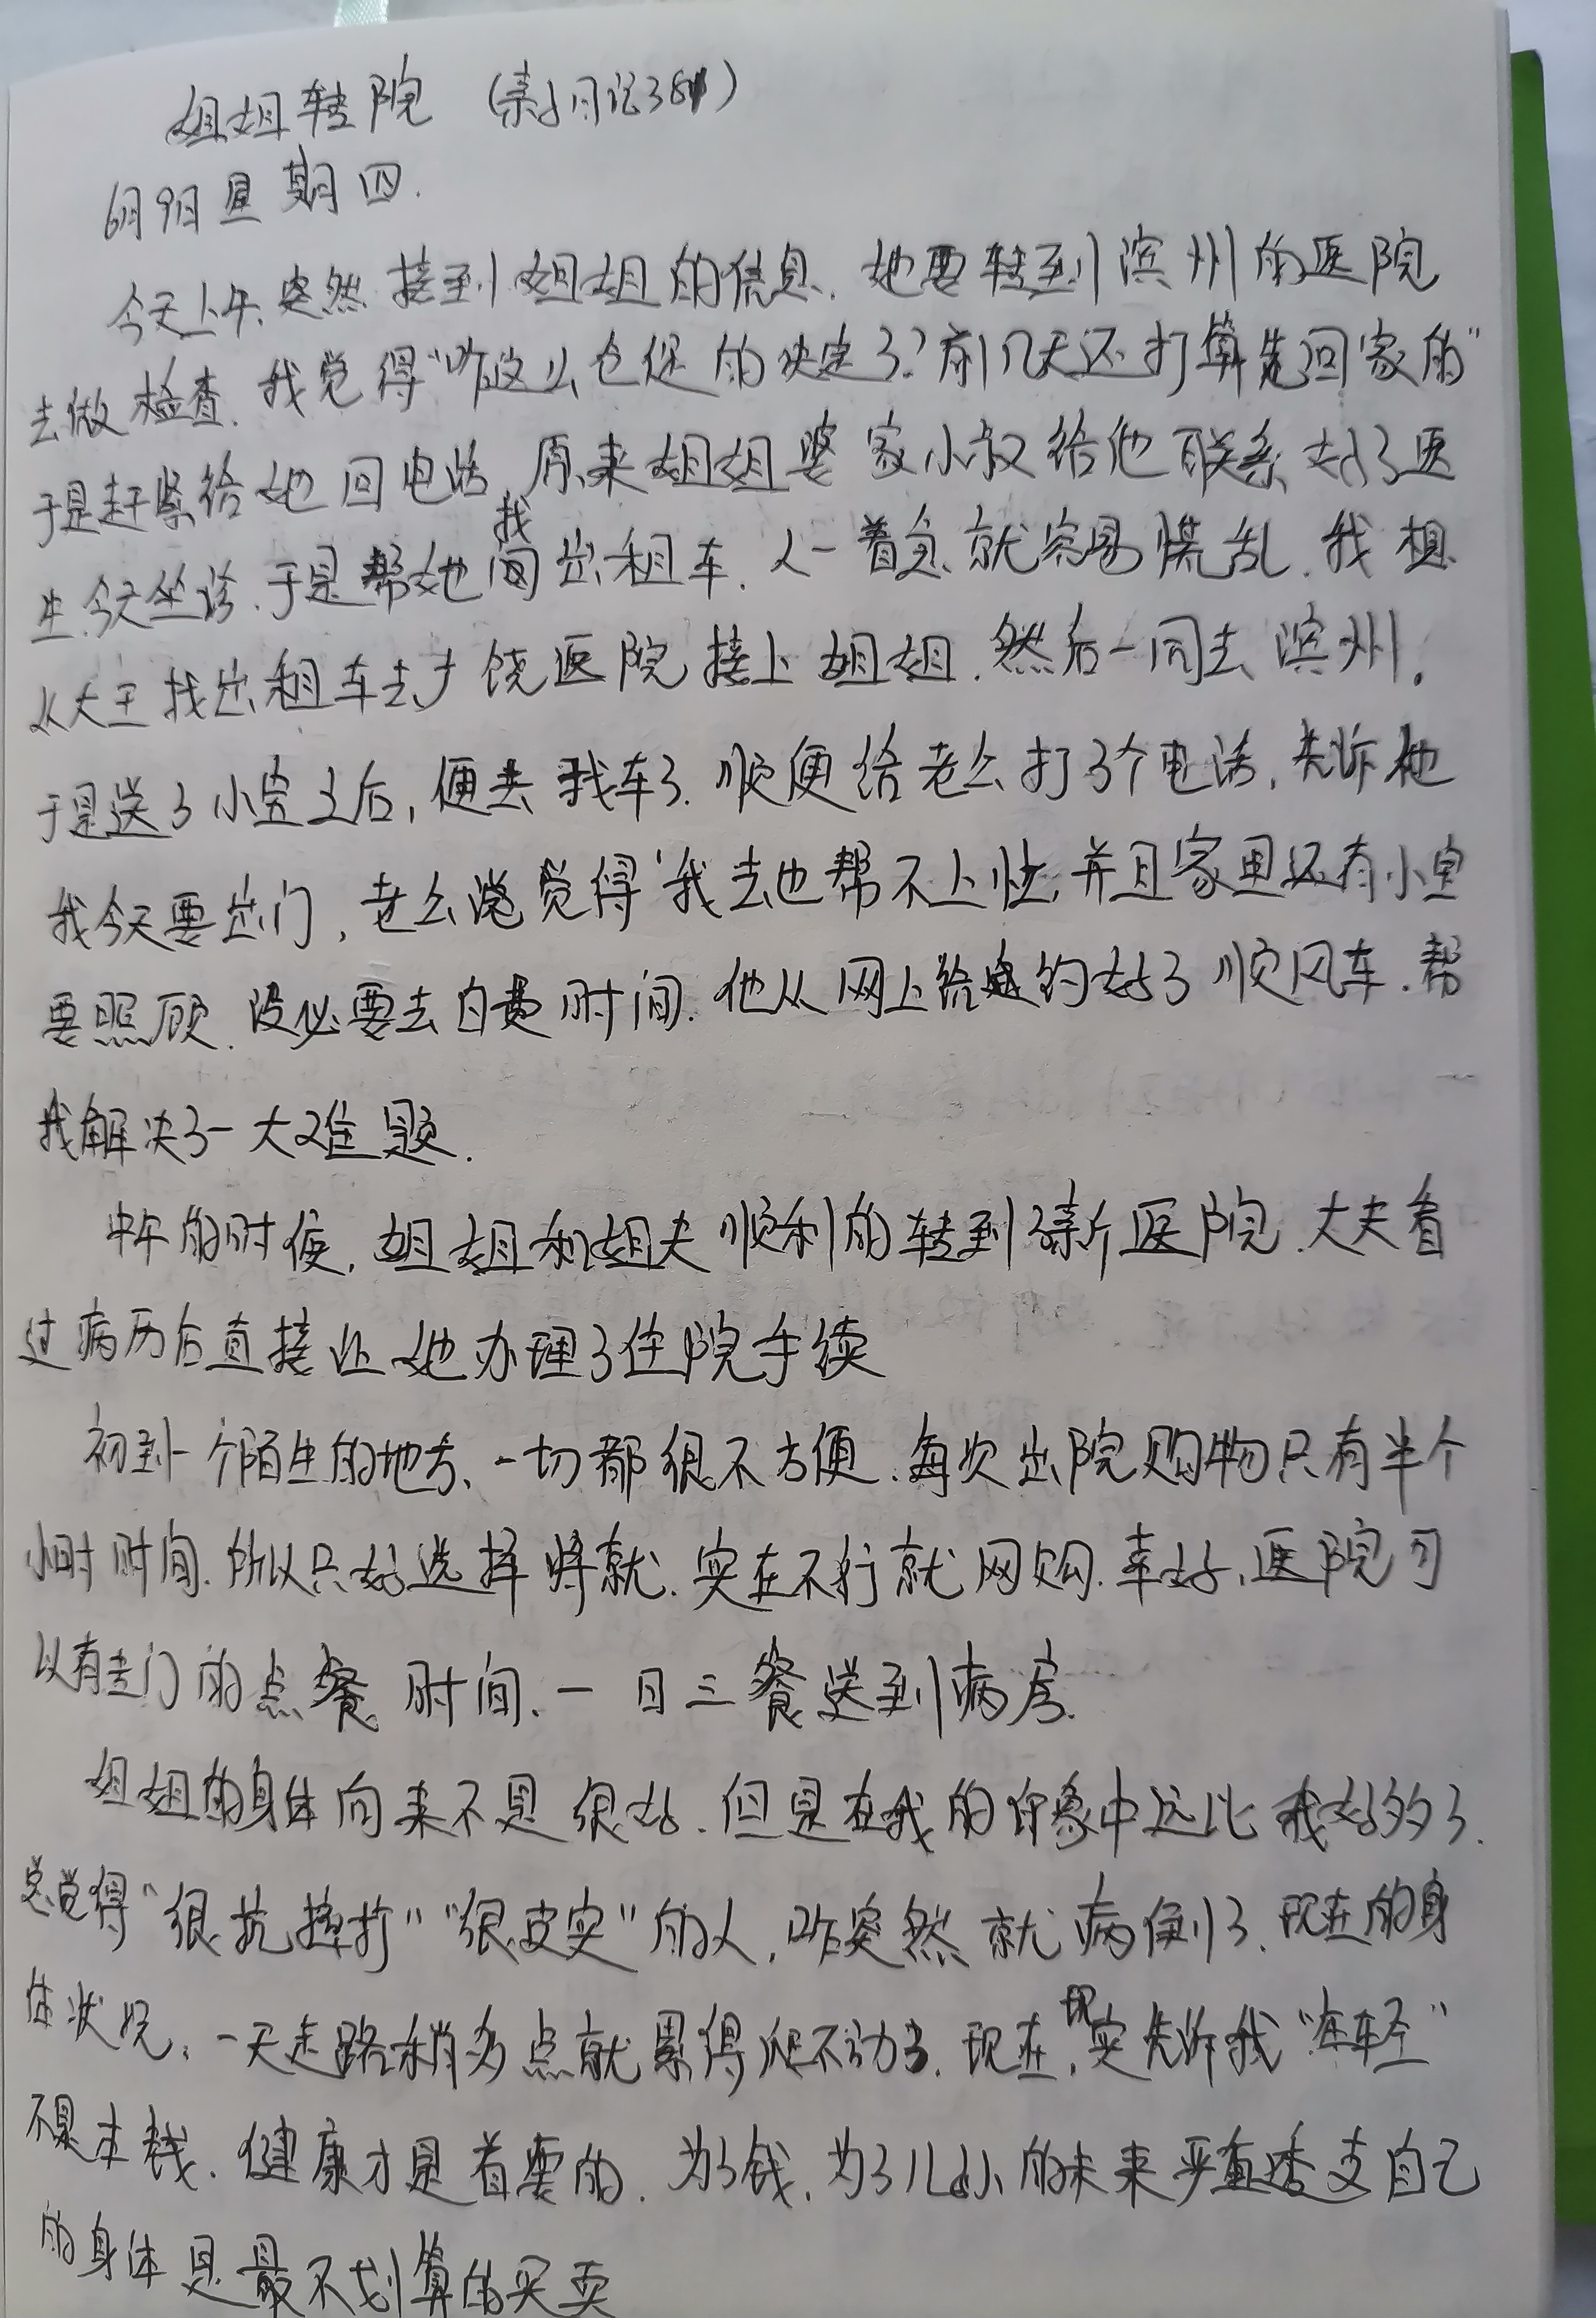 姐姐转院（亲子日记38）
6月9日星期四.
今天上午,突然接到姐姐的信息.她要转到滨州的医院
去做检查.我觉得“咋这么仓促的决定了?前几天还打算先回家的”
于是赶紧给她回电话,原来姐姐婆家小叔给他联系好了医
生.今天坐诊.于是帮她找出租车.人一着急就容易慌乱.我想
从大王找出租车去广饶医院接上姐姐.然后一同去滨州。
于是送了小宝之后,便去找车了.顺便给老公打了个电话,告诉他
我今天要出门,老公觉得“我去也帮不上忙,并且家里还有小宝
要照顾.没必要去白费时间.他从网上给约好了顺风车.帮
我解决了一大难题.
中午的时候,姐姐和姐夫顺利的转到了新医院.大夫看
过病历后直接让她办理了住院手续
初到一个陌生的地方、一切都很不方便.每次出院购物只有半个
小时时间.所以只好选择将就.实在不行就网购.幸好,医院可
以有专门的点餐时间.一日三餐送到病房.
姐姐的身体向来不是很好.但是在我的印象中远比我好多了.
总觉得“很抗摔打”“很皮实”的人,咋突然就病倒了.现在的身
体状况,一天走路稍多点就累得爬不动了.现在,现实告诉我“年轻”
不是本钱.健康才是首要的.为了钱,为了儿女的未来严重透支自己
的身体是最不划算的买卖